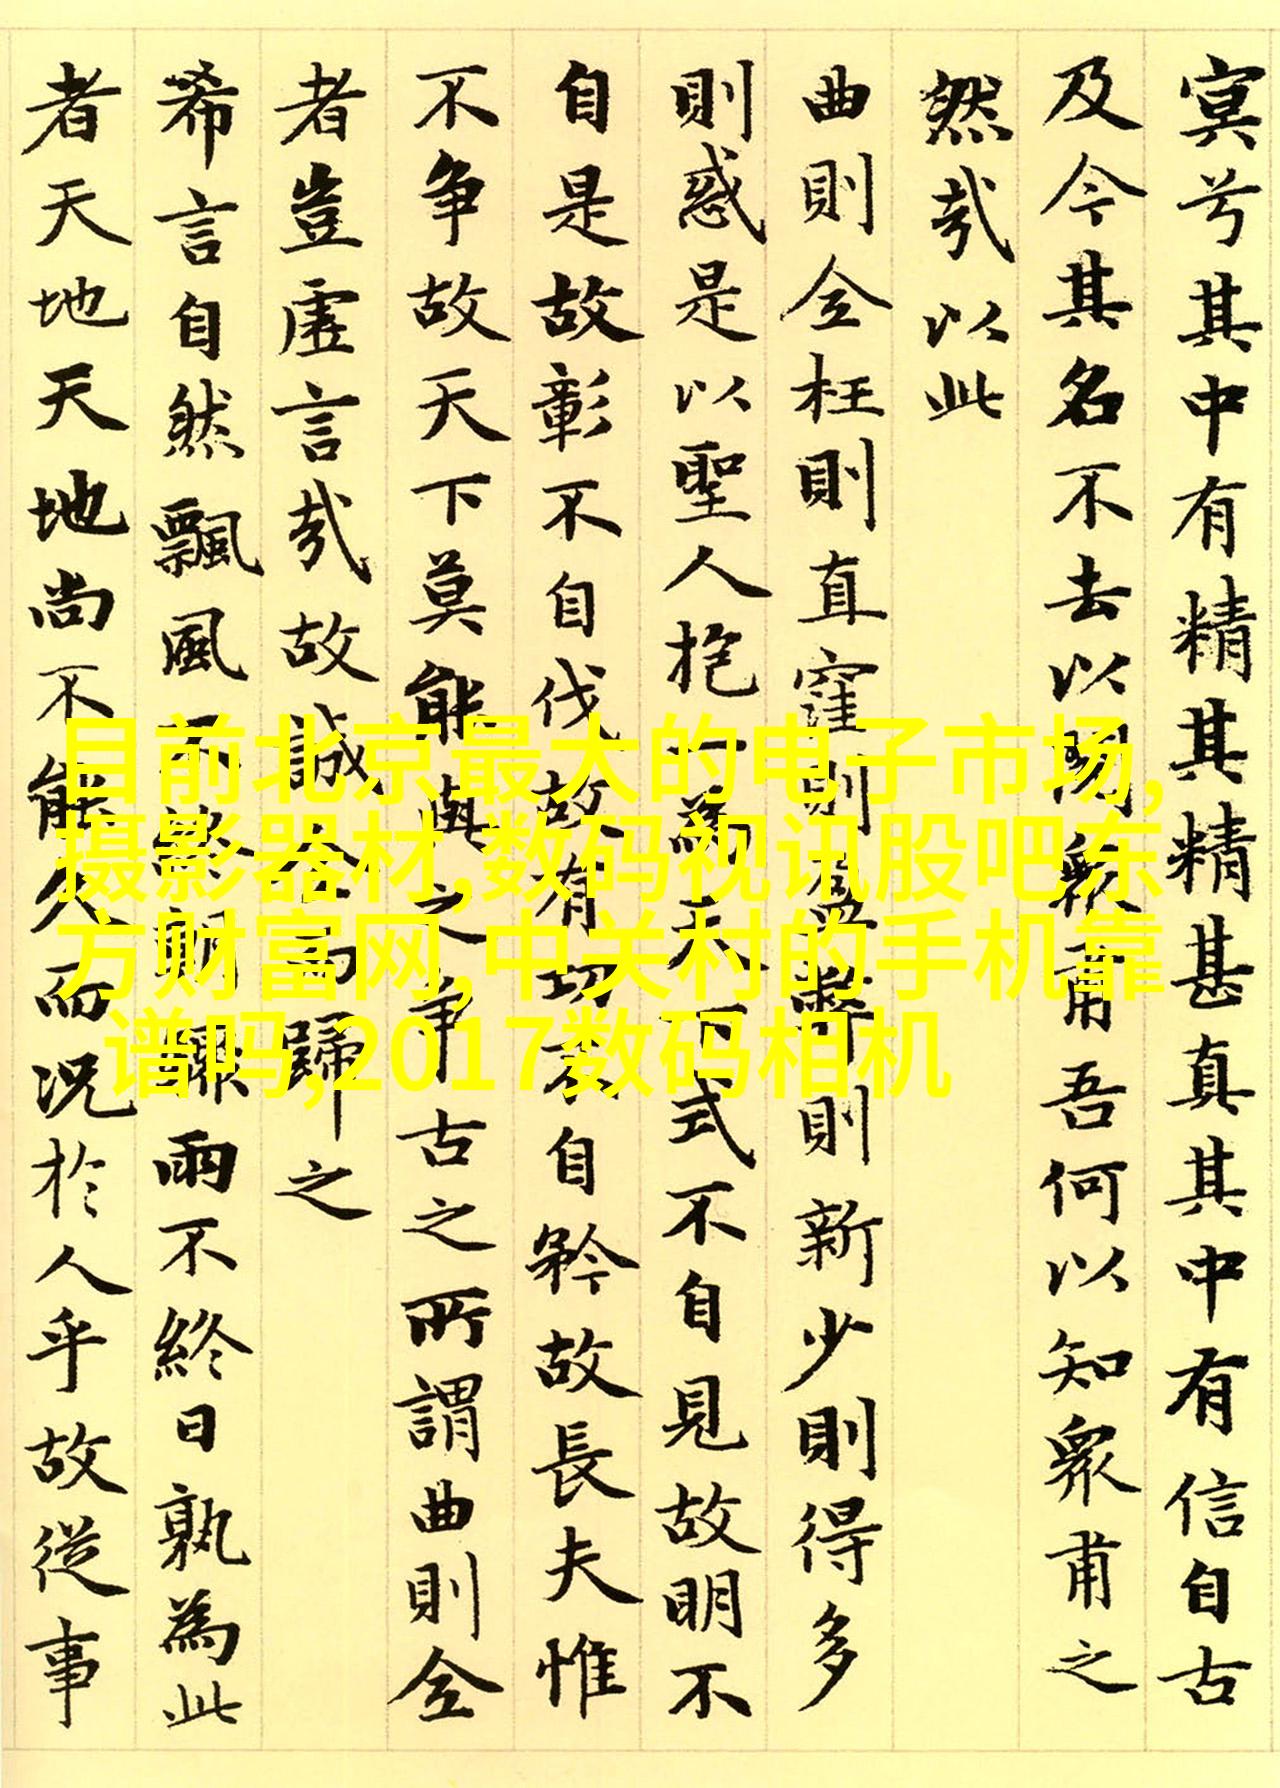 冥兮其中有精其精甚真其中有信自古
及今其名不去以閱衆甫吾何以知衆甫之
然哉以此
曲則全枉則直窪則盈弊則新少則得多
則惑是以聖人抱一為天下式不自見故明不
自是故彰不自伐故有功不自矜故長夫惟
不争故天下莫能與之争古之所謂曲則全
者豈虛言哉故誠全而歸之
希言自然飄風不終朝驟雨不終日孰為此
者天地天地尚不能久而況於人乎故從事
目前北京最大的电子市场,
摄影器材,数码视讯股吧东
方财富网,中关村的手机靠
谱吗,2017数码相机